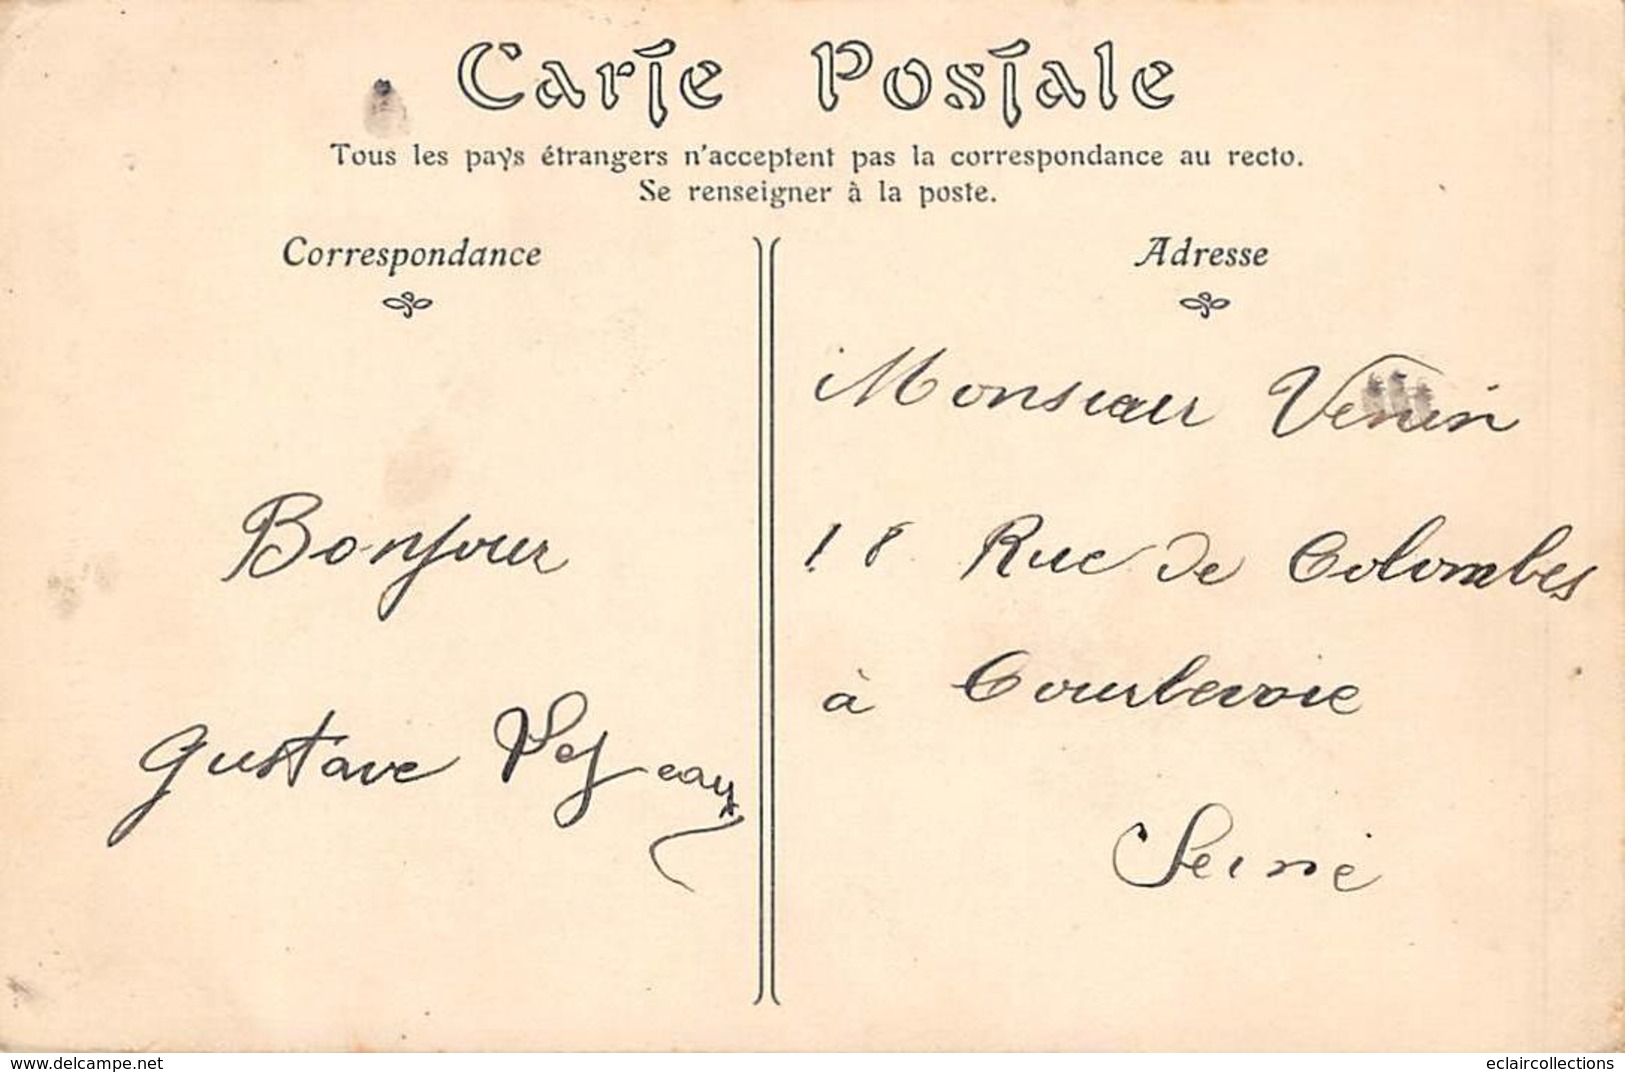 Carte Postale
Tous les pays étrangers n'acceptent pas la correspondance au recto.
Se renseigner à la poste.
Correspondance
Bonjour
Gustave
Adresse
Monsieur Venin
18 Rue de Colombes
à Courbevoie
Seine
www.delcampe.net
eclaircollections